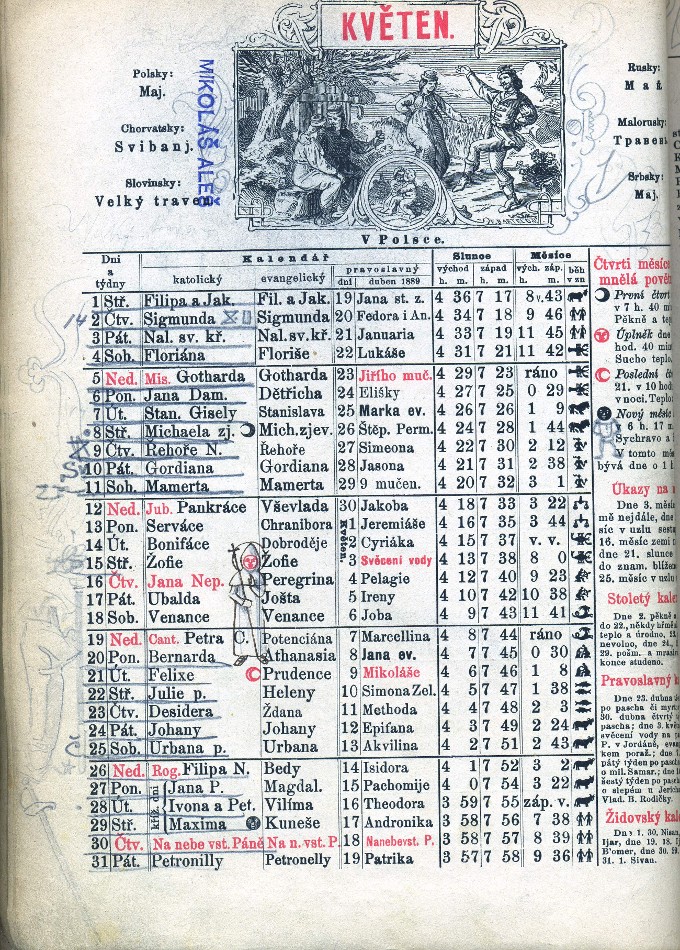 KVĚTEN.
Polsky:
Maj.
Chorvatsky:
Svibanj.
Slovinsky:
Velký traven
MIKOLÁŠ ALEŠ
Rusky:
Maj.
Malorusky:
Травень
Srbsky:
Maj.
V Polsce.
Dni a týdny Kalendář Slunce Měsíce
katolický evangelický pravoslavný východ západ vých. záp. běh
dni duben 1889 h. m. h. m. h. m. v zn
1 Stř. Filipa a Jak. Fil. a Jak. 19 Jana st. z. 4 36 7 17 8 v. 43
2 Čtv. Sigmunda Sigmunda 20 Fedora i An. 4 34 7 18 9 46
3 Pát. Nal. sv. kř. Nal. sv. kř. 21 Januaria 4 33 7 19 11 45
4 Sob. Floriána Floriše 22 Lukáše 4 31 7 21 11 42
5 Ned. Mis. Gotharda Gotharda 23 Jiřího muč. 4 29 7 23 ráno
6 Pon. Jana Dam. Dětřicha 24 Elišky 4 27 7 25 0 29
7 Út. Stan. Gisely Stanislava 25 Marka ev. 4 26 7 26 1 9
8 Stř. Michaela zj. Mich. zjev. 26 Štěp. Perm. 4 24 7 28 1 44
9 Čtv. Řehoře N. Řehoře 27 Simeona 4 22 7 30 2 12
10 Pát. Gordiana Gordiana 28 Jasona 4 21 7 31 2 38
11 Sob. Mamerta Mamerta 29 9 mučen. 4 20 7 32 3 1
12 Ned. Jub. Pankráce Vševlada 30 Jakoba 4 18 7 33 3 22
13 Pon. Serváce Chranibora Květen. 1 Jeremiáše 4 16 7 35 3 44
14 Út. Bonifáce Dobroděje 2 Cyriáka 4 15 7 37 v. v.
15 Stř. Žofie Žofie 3 Svěcení vody 4 13 7 38 8 0
16 Čtv. Jana Nep. Peregrina 4 Pelagie 4 12 7 40 9 23
17 Pát. Ubalda Jošta 5 Ireny 4 10 7 42 10 38
18 Sob. Venance Venance 6 Joba 4 9 7 43 11 41
19 Ned. Cant. Petra C. Potenciána 7 Marcellina 4 8 7 44 ráno
20 Pon. Bernarda Athanasia 8 Jana ev. 4 7 7 45 0 30
21 Út. Felixe Prudence 9 Mikoláše 4 6 7 46 1 8
22 Stř. Julie p. Heleny 10 Simona Zel. 4 5 7 47 1 38
23 Čtv. Desidera Ždana 11 Methoda 4 4 7 48 2 3
24 Pát. Johany Johany 12 Epifana 4 3 7 49 2 24
25 Sob. Urbana p. Urbana 13 Akvilina 4 2 7 51 2 43
26 Ned. Rog. Filipa N. Bedy 14 Isidora 4 1 7 52 3 2
27 Pon. Jana P. Magdal. 15 Pachomije 4 0 7 54 3 22
28 Út. Ivona a Pet. Vilíma 16 Theodora 3 59 7 55 záp. v.
29 Stř. Maxima Kuneše 17 Andronika 3 58 7 56 7 38
30 Čtv. Na nebe vst. Páně Na n. vst. P. 18 Nanebevst. P. 3 58 7 57 8 39
31 Pát. Petronilly Petronelly 19 Patrika 3 57 7 58 9 36
Čtvrti měsíce
mnělá pově
První čtvrt
v 7 h. 40 mi
Pěkně a tep
Úplněk dne
hod. 40 min
Sucho teplo
Poslední čt
21. v 10 hodi
v noci, Teplo
Nový měsíc
v 6 h. 17 m
Sychravo a
V tomto mě
bývá dne o 1 h
Úkazy na
Dne 3. měsí
mě nejdále, dne
síc v uzlu sestu
16. měsíc zemi n
dne 21. slunce
do znam. blížen
25. měsíc v uzlu
Stoletý kale
Dne 2. pěkně a
do 22., někdy hřmě
teplo a úrodno, 23
nevolno, dne 24.,
29. pošm. a mrazí
konce studeno.
Pravoslavný k
Dne 23. dubna
po pascha či myro
30. dubna čtvrtý
pascha; dne 3. kvě
svěcení vody na
P. v Jordáně, evan
kem poraž.; dne 7.
pátý týden po pasch
o mil. Samar.; dne
šestý týden po pasch
o slepém u Jerich
Vlad. B. Rodičky.
Židovský kal
Dne 1. 30. Nisan,
Ijar, dne 19. 18. I
B'omer, dne 30. 29.
31. 1. Sivan.